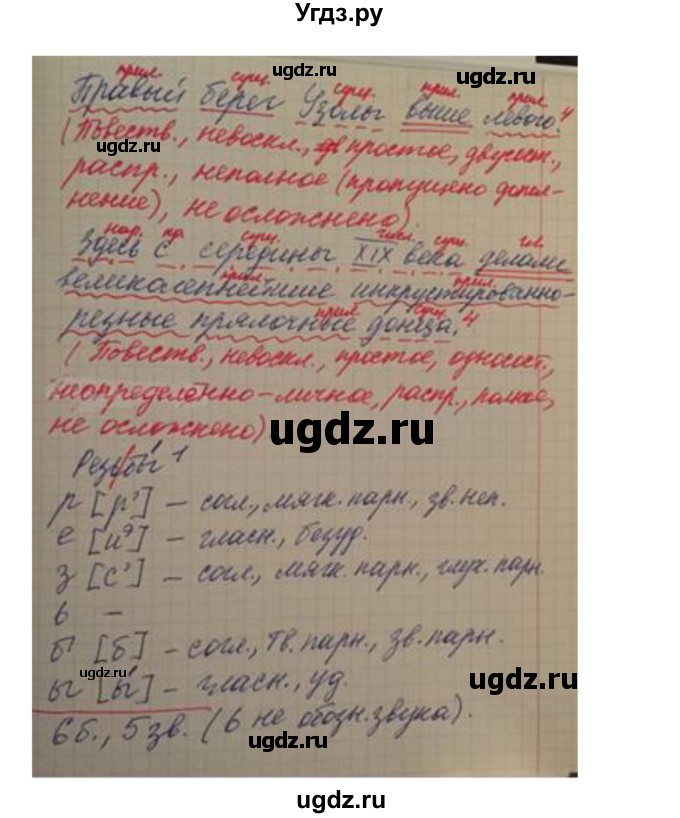 Угдз.ру
ugdz.ru
ugdz.ru
прил. сущ. сущ. прил. прил.
Правый берег Узолы выше левого.⁴
(Повеств., невоскл., простое, двусост.,
распр., неполное (пропущено допол-
нение), не осложнено).
ugdz.ru
нар. пр. сущ. числ. сущ. гл.
Здесь с середины XIX века делали
прил. прил.
великолепнейшие инкрустированно-
прил. сущ.
резные прялочные донца.⁴
(Повеств., невоскл., простое, односост.,
неопределённо-личное, распр., полное,
не осложнено)
ugdz.ru
Резьбы¹
р [р'] – согл., мягк. парн., зв. неп.
е [иэ] – гласн., безуд.
з [с'] – согл., мягк. парн., глух. парн.
ь –
б [б] – согл., тв. парн., зв. парн.
ugdz.ru
ugdz.ru
ы [ы́] – гласн., уд.
6б., 5зв. (ь не обозн. звука).
ugdz.ru
ugdz.ru